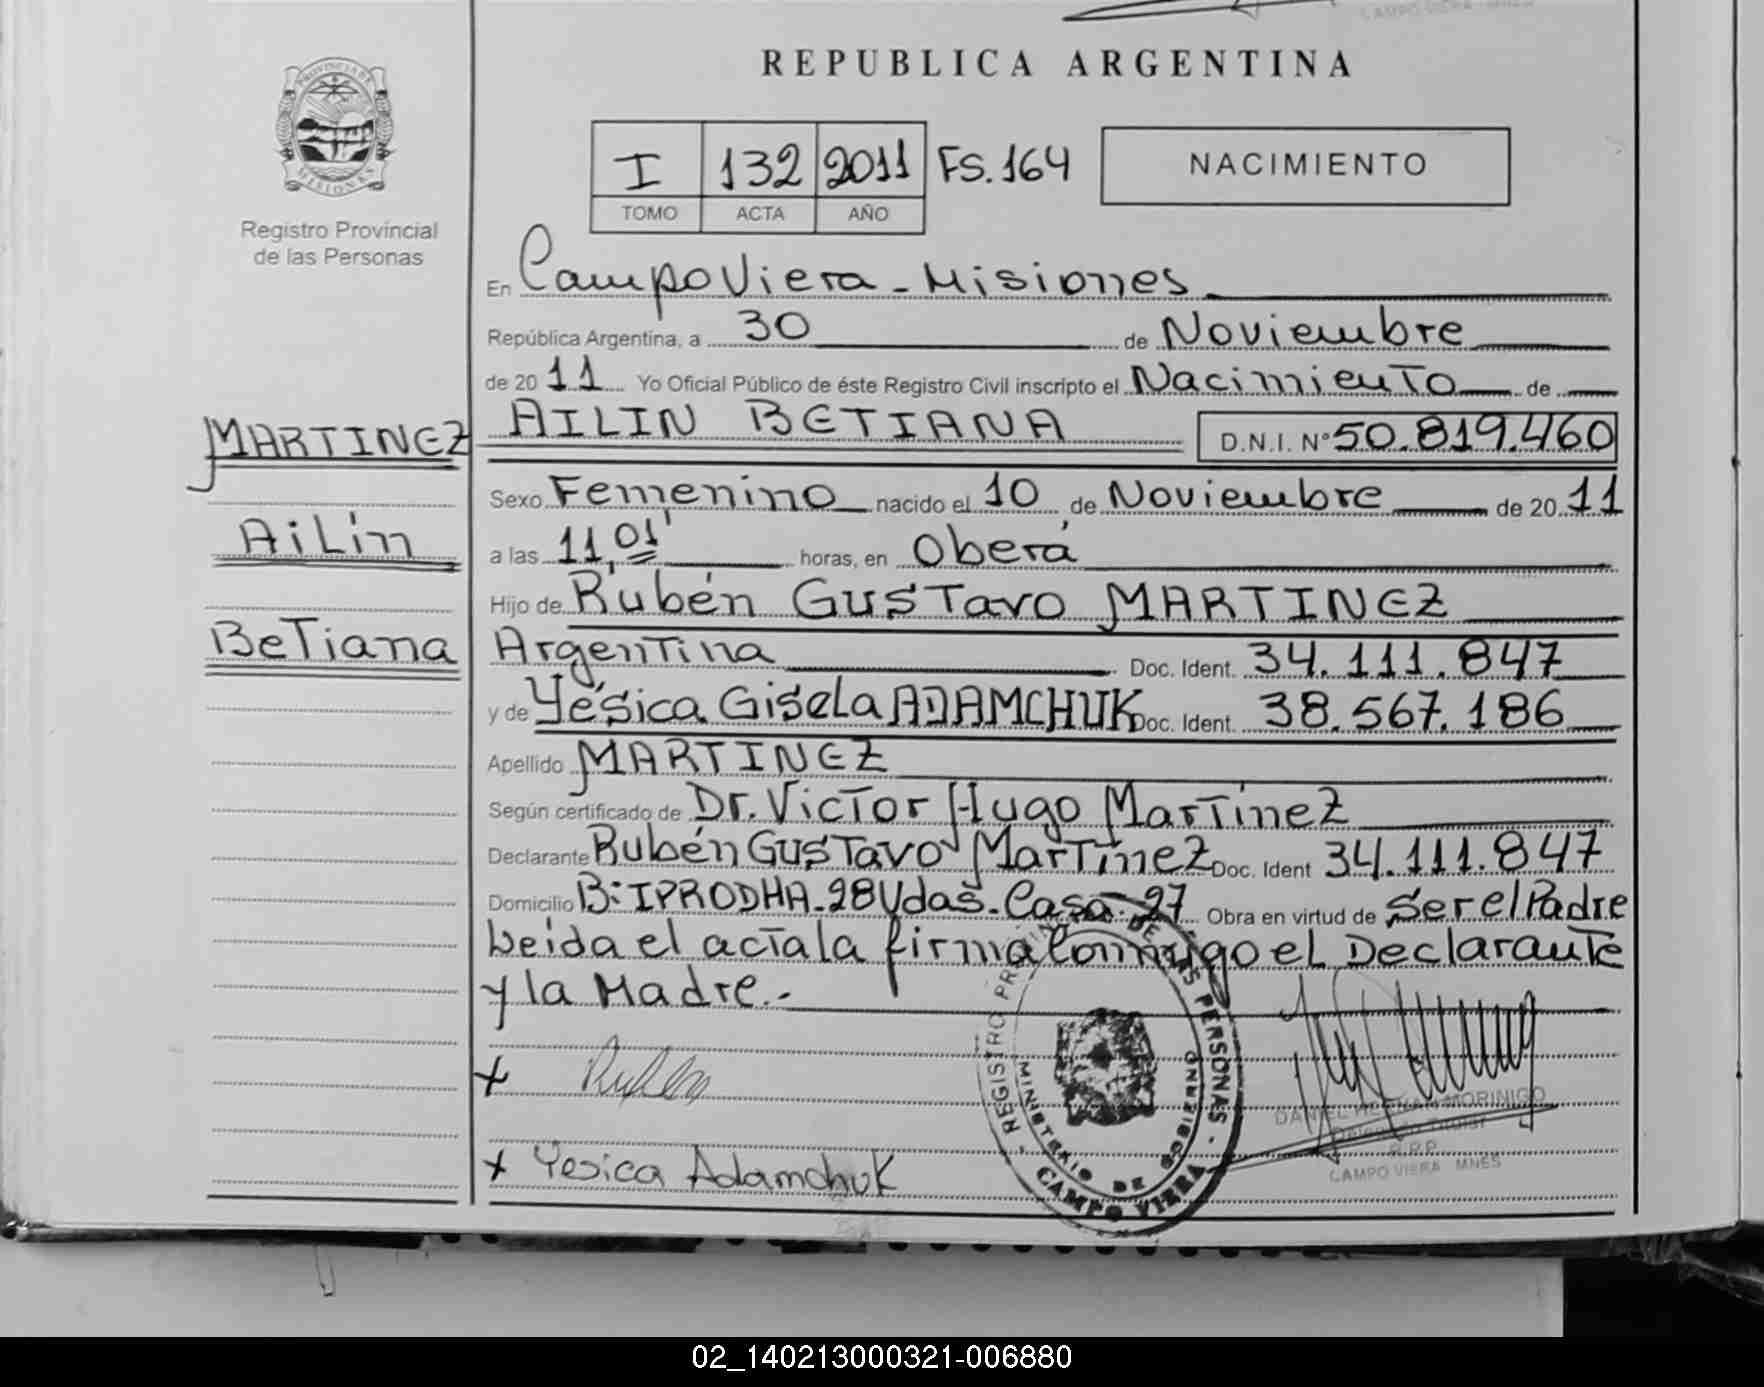 CAMPO VIERA MNES
PROVINCIA DE
MISIONES
Registro Provincial
de las Personas
MARTINEZ
AiLin
BeTiana
REPUBLICA ARGENTINA
I 132 2011 FS.164
TOMO ACTA AÑO
NACIMIENTO
En Campo Viera - Misiones
República Argentina, a 30 de Noviembre
de 20 11 Yo Oficial Público de éste Registro Civil inscripto el Nacimiento de
AILIN BETIANA D.N.I. Nº 50.819.460
Sexo Femenino nacido el 10 de Noviembre de 20 11
a las 11,01' horas, en Oberá
Hijo de Rubén Gustavo MARTINEZ
Argentina Doc. Ident. 34.111.847
y de Yésica Gisela ADAMCHUK Doc. Ident. 38.567.186
Apellido MARTINEZ
Según certificado de Dr. Victor Hugo Martínez
Declarante Rubén Gustavo Martínez Doc. Ident 34.111.847
Domicilio B: IPRODHA-28 Vdas. Casa: 27 Obra en virtud de Ser el Padre
Leída el acta la firma Conmigo el Declarante
y la Madre.-
x Ruben
x Yesica Adamchuk
REGISTRO PROVINCIAL DE LAS PERSONAS
MINISTERIO DE GOBIERNO
CAMPO VIERA
MORINIGO
Delegado Titular
R.P.P.
CAMPO VIERA MNES
02_140213000321-006880